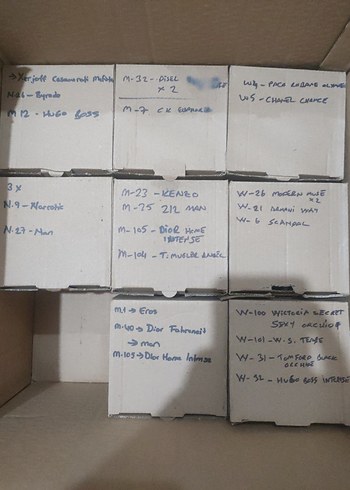 → Xerjoff Casamorati
N-26 - Byredo
M-12 - HUGO BOSS
M-32 - DISEL
x 2
M-7 CK EUPHORIA
W24 - PACO RABANE
W-5 - CHANEL CHANCE
3 x
N.9 - Narcotic
N.27 - Nan
M-23 - KENZO
M-25 212 MAN
M-105 - DIOR HOME
INTENSE
M-104 - T. MUGLER
W-26 MODERN MUSE
x2
W-21 ARMANI WAY
W-6 SCANDAL
M.1 → Eros
M.40 → Dior Fahrenait
→ man
M.105 → Dior Home Intense
W-100 WICTORIA SECRET
SEXY
W-101 - W.S. TEASE
W-31 - TOMFORD BLACK
ORCHIDE
W-32 - HUGO BOSS INTENSE